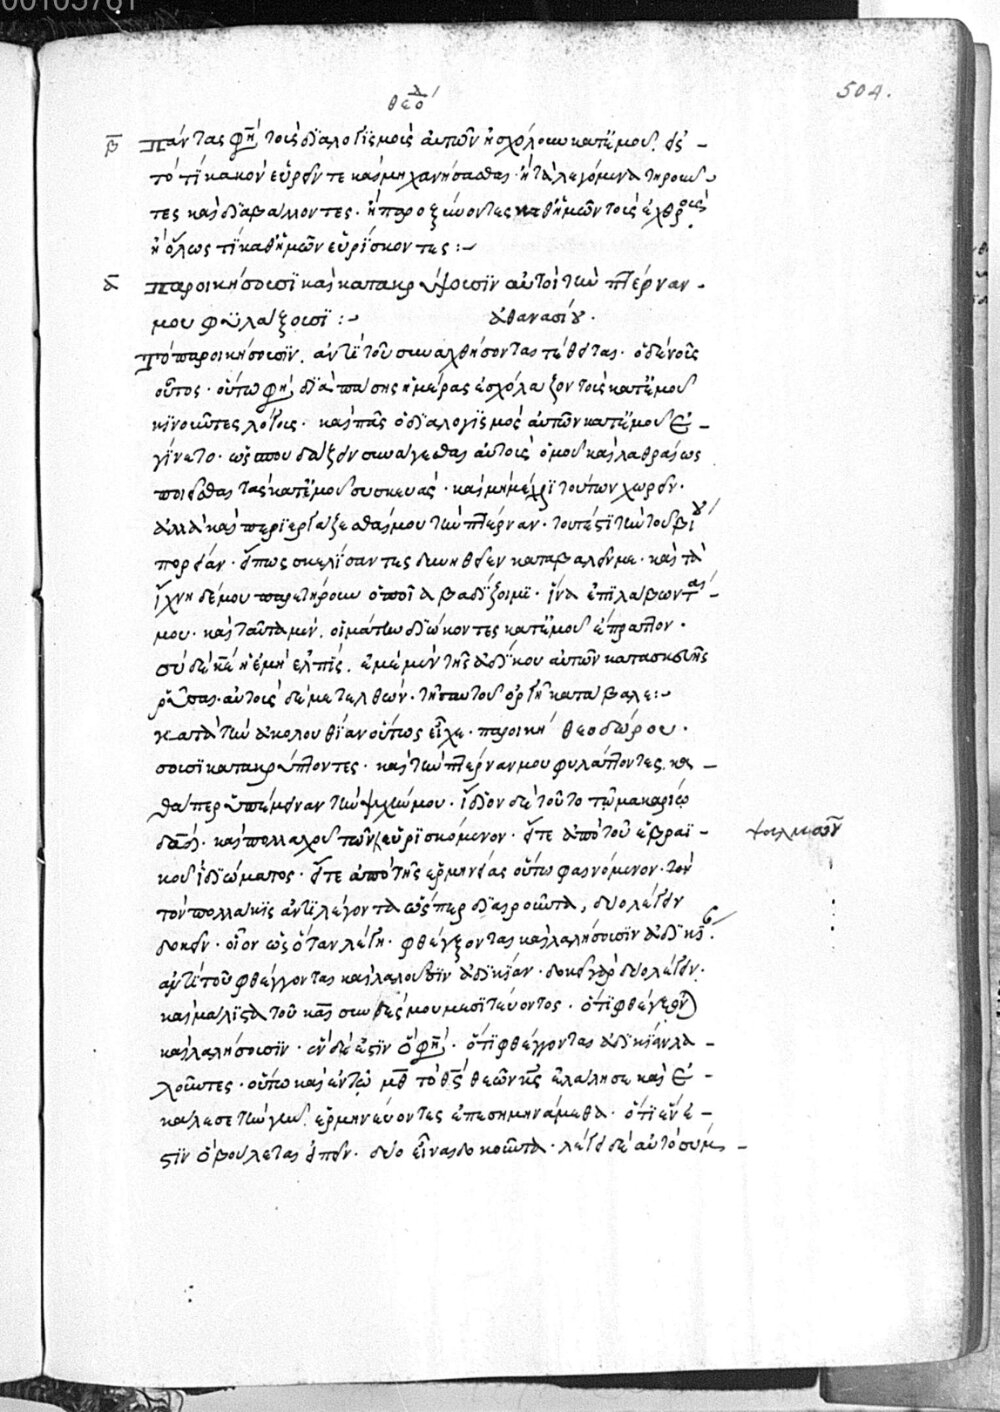 504.
θεοδ
β πάντας φη τοῖς διαλογισμοῖς αὐτῶν ἠσχόλουν κατ' ἐμοῦ. εἰς
τό τι κακὸν εὑρεῖν τε καὶ μηχανήσασθαι. ἢ τὰ λεγόμενα τηροῦν
τες καὶ διαβάλλοντες. ἢ παροξύνοντες καθ' ἡμῶν τοῖς ἐχθροῖς
ἢ ὅλως τι καθ' ἡμῶν εὑρίσκοντες:~
δ παροικήσουσι καὶ κατακρύψουσιν αὐτοὶ τὴν πτέρναν
μου φυλάξουσι:~ ἀθανασίου.
τὸ παροικήσουσιν. ἀντὶ τοῦ συναχθήσονται τέθειται. ὁ δὲ νοῦς
οὗτος. οὕτω φη, διὰ πάσης ἡμέρας ἐσχόλαζον τοῖς κατ' ἐμοῦ
κινοῦντες λόγοις. καὶ πᾶς ὁ διαλογισμὸς αὐτῶν κατ' ἐμοῦ ἐ
γίνετο. ὡς σπουδάζειν συνάγεσθαι αὐτοὺς ὁμοῦ καὶ λαθραίως
ποιεῖσθαι τὰς κατ' ἐμοῦ συσκευάς. καὶ μὴ μέχρι τούτων χωρεῖν.
ἀλλὰ καὶ περιεργάζεσθαί μου τὴν πτέρναν. τουτέστι τὴν τοῦ βίου
πορείαν. ὅπως σκελίσαντες δυνηθεῖεν καταβαλεῖν με. καὶ τὰ
ἴχνη δέ μου παρετήρουν ὅποι ἂν βαδίζοιμι. ἵνα ἐπιλάβωνταί
μου. καὶ ταῦτα μὲν. οἱ μάτην διώκοντες κατ' ἐμοῦ ἔπραττον.
σὺ δὲ κε ἡ ἐμὴ ἐλπίς. ἐμὲ μὲν τῆς ἀδίκου αὐτῶν κατασκευῆς
ῥῦσαι. αὐτοὺς δὲ μετελθών. τῇ σαυτοῦ ὀργῇ κατάβαλε:~
κατὰ τὴν ἀκολουθίαν οὕτως εἶχε. παροική θεοδώρου.
σουσι κατακρύπτοντες. καὶ τὴν πτέρναν μου φυλάττοντες. κα
θάπερ ὑπέμειναν τὴν ψυχήν μου. ἴδιον δὲ τοῦτο τῷ μακαρίῳ
δαδ. καὶ πολλαχοῦ τῶν εὑρισκόμενον. εἴτε ἀπὸ τοῦ ἑβραϊ
ψαλμῶν
κοῦ ἰδιώματος. εἴτε ἀπὸ τῆς ἑρμηνείας οὕτω φαινόμενον. τὸν
τὸν πολλάκις ἓν τι λέγοντα ὥσπερ διαιροῦντα, δύο λέγειν
δοκεῖν. οἷον ὡς ὅταν λέγῃ. φθέγξονται καὶ λαλήσουσιν ἀδικίαν.
ἀντὶ τοῦ φθέγγονται καὶ λαλοῦσιν ἀδικίαν. δοκεῖ γὰρ δύο λέγειν.
καὶ μάλιστα τοῦ καὶ συνδέσμου μεσιτεύοντος. ὅτι φθέγξον
καὶ λαλήσουσιν. ἓν δέ ἐστιν ὅ φη. ὅτι φθέγγονται ἀδικίαν λα
λοῦντες. οὕτω καὶ ἐν τῷ μθ τὸ θς θεῶν κς ἐλάλησε καὶ ἐ
κάλεσε τὴν γῆν. ἑρμηνεύοντες ἐπεσημηνάμεθα. ὅτι ἕν ἐ
στιν ὃ βούλεται εἰπεῖν. δύο εἶναι δοκοῦντα. λέγει δὲ αὐτὸ σύμ